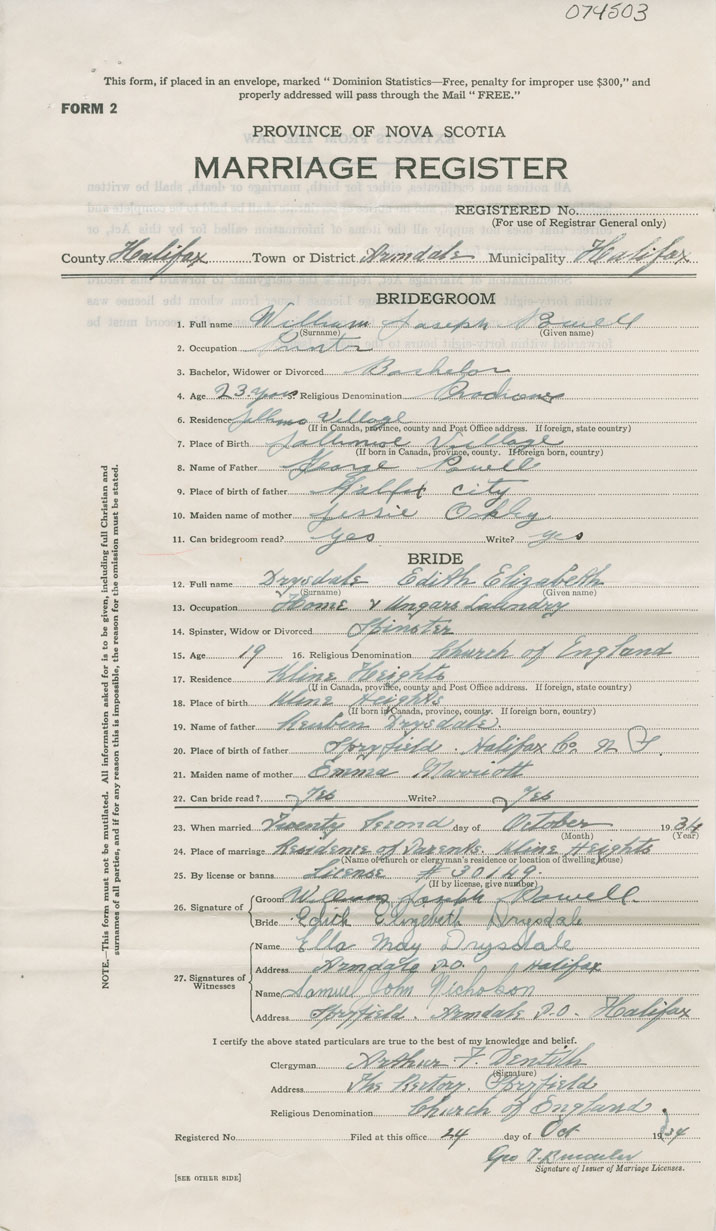 074503
This form, if placed in an envelope, marked " Dominion Statistics—Free, penalty for improper use $300," and
properly addressed will pass through the Mail " FREE."
FORM 2
PROVINCE OF NOVA SCOTIA
MARRIAGE REGISTER
REGISTERED No.
(For use of Registrar General only)
County Halifax Town or District Armdale Municipality Halifax
BRIDEGROOM
1. Full name William Joseph Powell
(Surname) (Given name)
2. Occupation
3. Bachelor, Widower or Divorced Bachelor
4. Age 23 years Religious Denomination
6. Residence Village
(If in Canada, province, county and Post Office address. If foreign, state country)
7. Place of Birth Village
(If born in Canada, province, county. If foreign born, country)
8. Name of Father George Powell
9. Place of birth of father Halifax city
10. Maiden name of mother Jessie
11. Can bridegroom read? yes Write? yes
BRIDE
12. Full name Drysdale Edith Elizabeth
(Surname) (Given name)
13. Occupation Home & Ungars Laundry
14. Spinster, Widow or Divorced Spinster
15. Age 19 16. Religious Denomination Church of England
17. Residence Kline Heights
(If in Canada, province, county and Post Office address. If foreign, state country)
18. Place of birth Kline Heights
(If born in Canada, province, county. If foreign born, country)
19. Name of father Reuben Drysdale
20. Place of birth of father Spryfield. Halifax Co. N S
21. Maiden name of mother Emma Marriott
22. Can bride read? Yes Write? Yes
23. When married Twenty Second day of October 1934
(Month) (Year)
24. Place of marriage Residence of Parents. Kline Heights
(Name of church or clergyman's residence or location of dwelling house)
25. By license or banns License # 30149
(If by license, give number)
26. Signature of
Groom William Joseph Powell
Bride Edith Elizebeth Drysdale
27. Signatures of Witnesses
Name Ella May Drysdale
Address Armdale P.O. Halifax
Name Samuel John Nicholson
Address Spryfield. Armdale P.O. Halifax
I certify the above stated particulars are true to the best of my knowledge and belief.
Clergyman Arthur F.
(Signature)
Address The Rectory. Spryfield
Religious Denomination Church of England
Registered No. Filed at this office 24 day of Oct 1934
Geo T.
Signature of Issuer of Marriage Licenses.
[SEE OTHER SIDE]
NOTE.—This form must not be mutilated. All information asked for is to be given, including full Christian and
surnames of all parties, and if for any reason this is impossible, the reason for the omission must be stated.